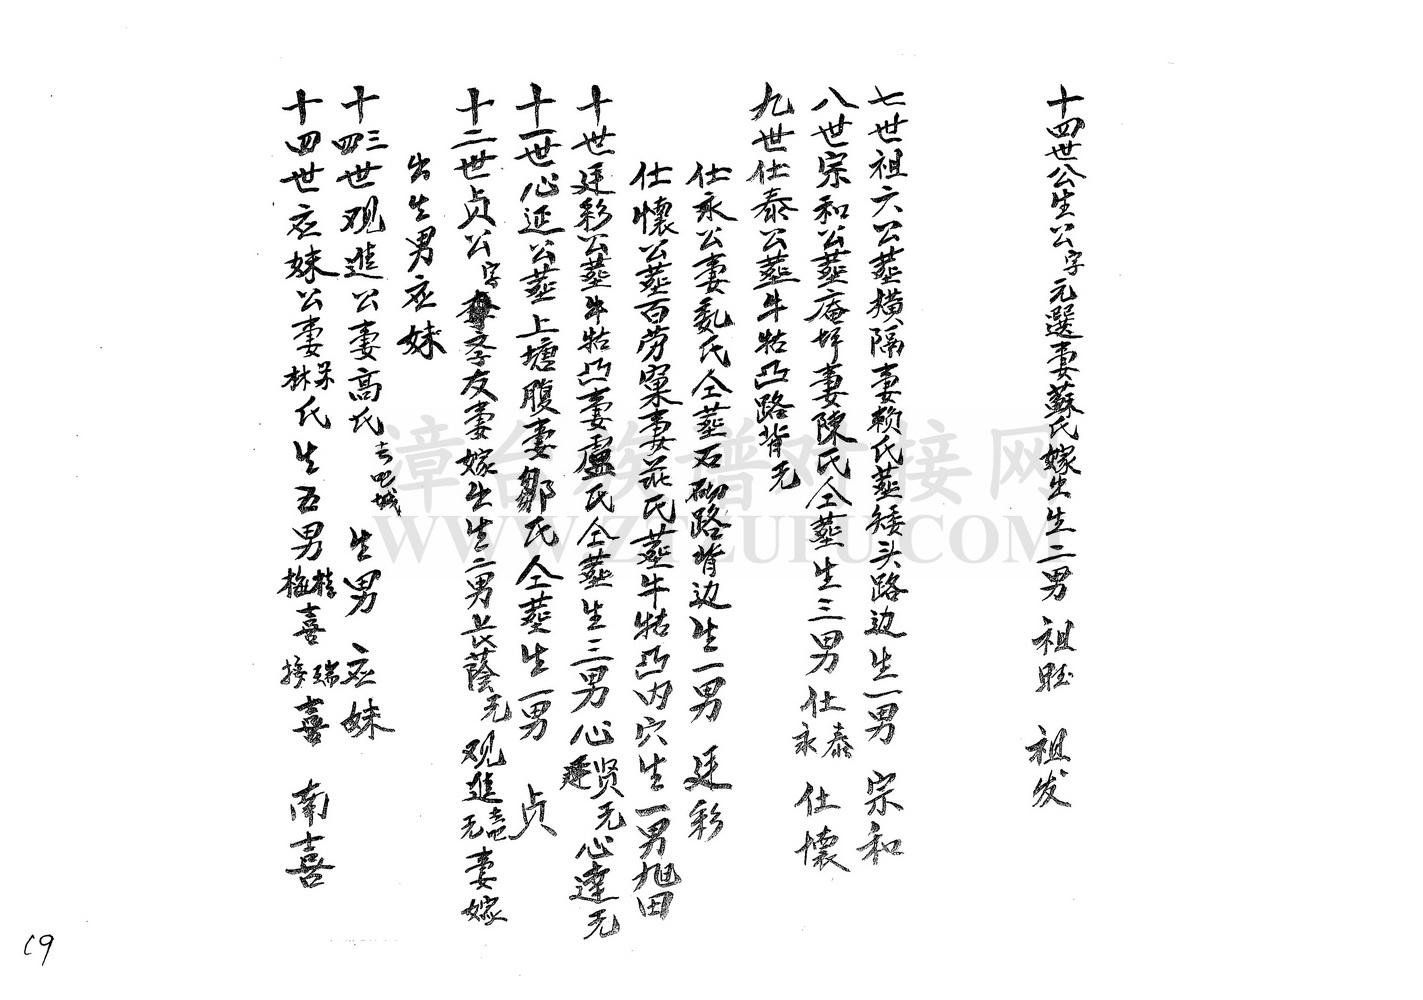 十四世公生公字元選妻蘇氏嫁出生二男 祖 祖发
七世祖六公葬横隔妻赖氏葬矮头路边生一男 宗和
八世宗和公葬庵坪妻陳氏仝葬生三男 仕泰 仕永 仕懷
九世仕泰公葬牛牯凸路背无
仕永公妻氏仝葬石砌路背边生一男 廷彩
仕懷公葬百劳窠妻莊氏葬牛牯凸内穴生一男旭田
十世廷彩公葬牛牯凸妻盧氏仝葬生三男心贤无 延 心達无
十一世心延公葬上塘腹妻鄒氏仝葬生一男 贞
十二世贞公字孝友妻嫁出生二男长蔭无 观進去吧无妻嫁
出生男应妹
十三四世观進公妻高氏去吧城 生男 应妹
十四世应妹公妻林氏生五男桂梅喜瑞接喜 南喜
漳台族谱对接网
WWW.ZTZUPU.COM
19